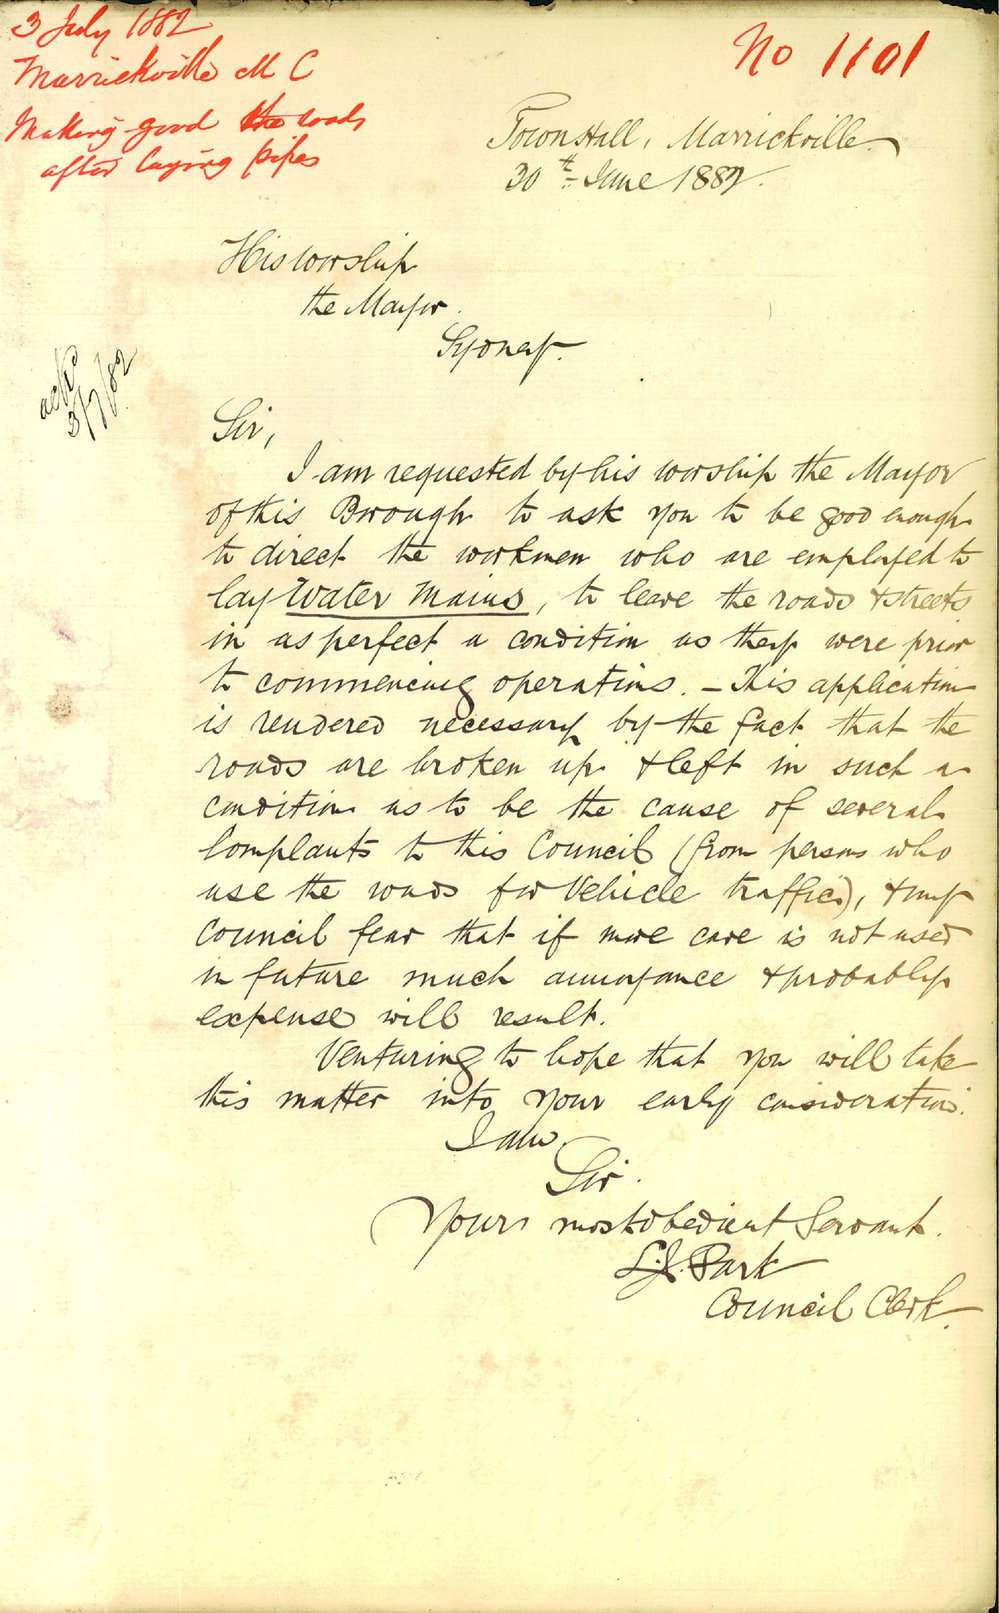 3 July 1882
Marrickville M C
Making good the roads
after laying pipes
No 1101
Town Hall, Marrickville
30th June 1882.
His worship
the Mayor.
Sydney.
ackd
3/7/82
Sir,
I am requested by his worship the Mayor
of this Borough to ask you to be good enough
to direct the workmen who are employed to
lay Water Mains, to leave the roads & streets
in as perfect a condition as they were prior
to commencing operations. - This application
is rendered necessary by the fact that the
roads are broken up & left in such a
condition as to be the cause of several
complaints to this Council (from persons who
use the roads for Vehicle traffic), & my
Council fear that if more care is not used
in future much annoyance & probably
expense will result.
Venturing to hope that you will take
this matter into your early consideration.
I am
Sir.
Yours most obedient Servant.
Park
Council Clerk.